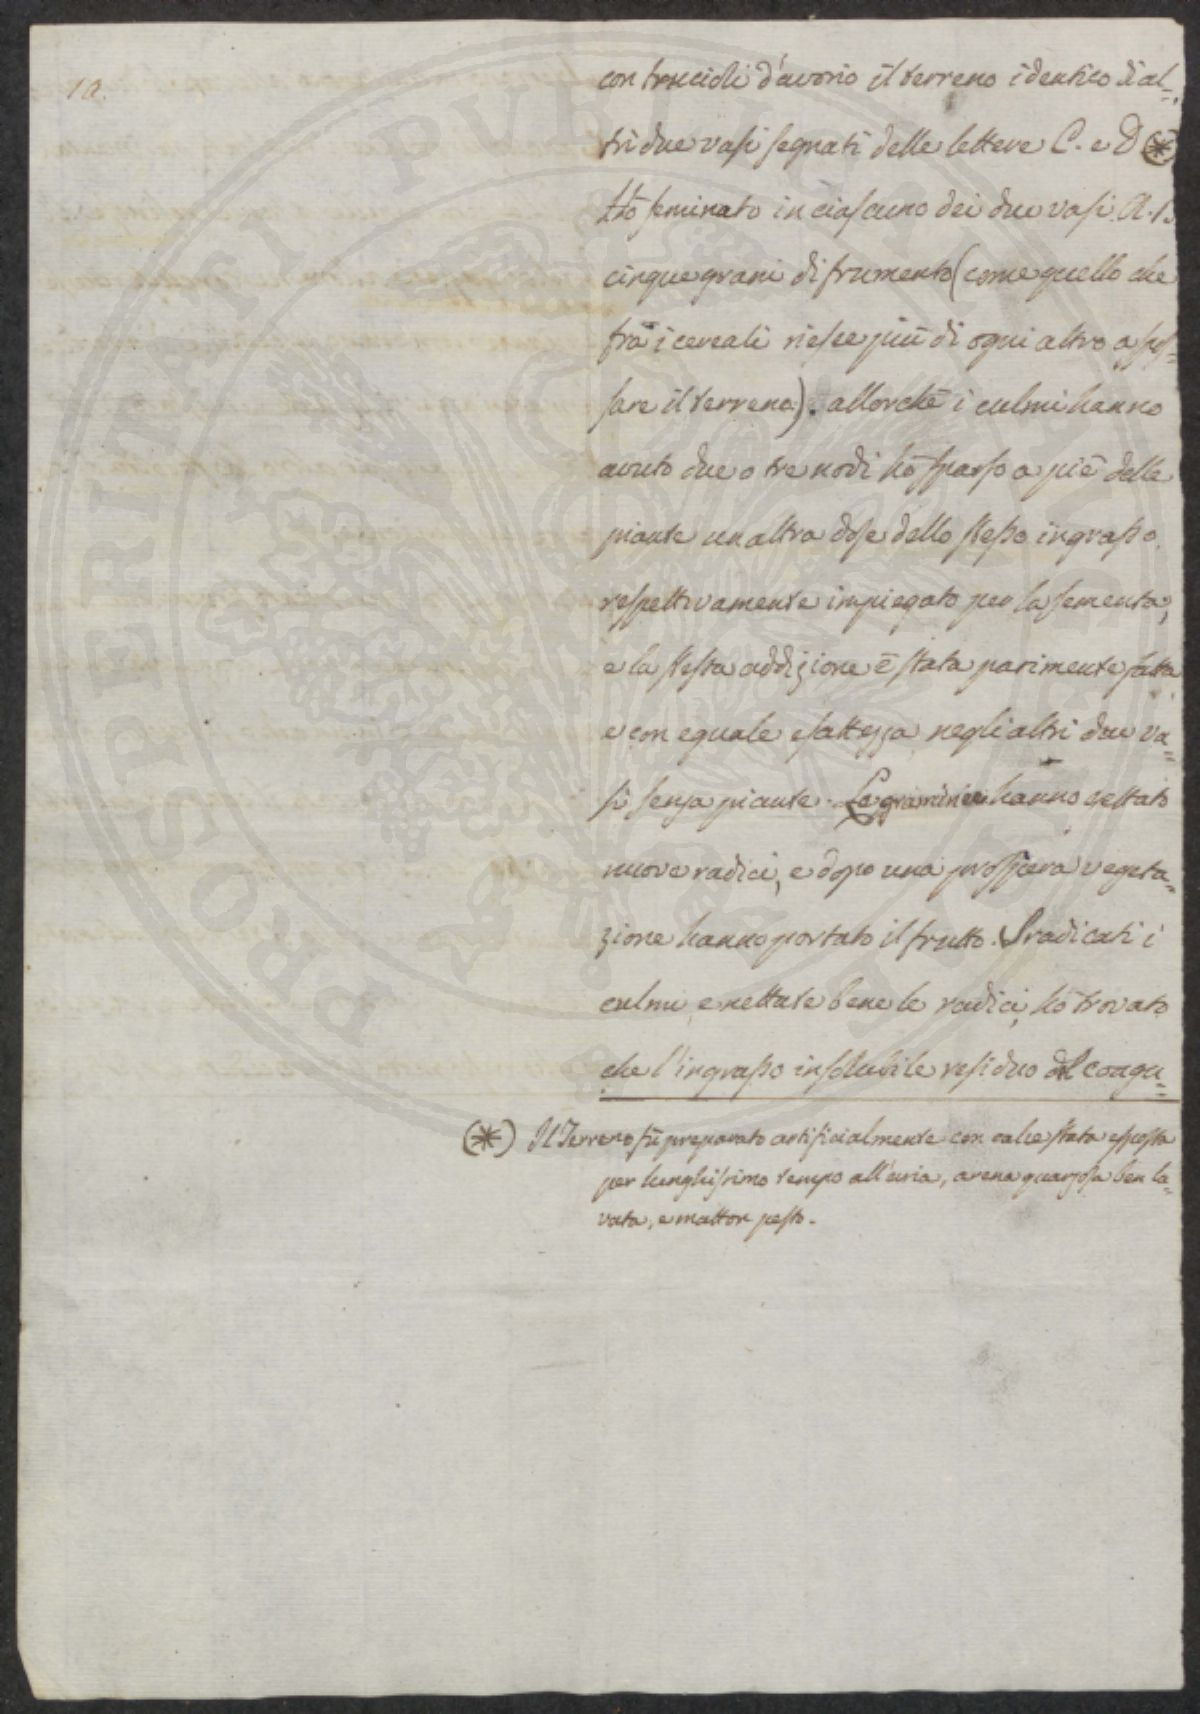 10.
con truccioli d'avorio il terreno identico di al-
tri due vasi segnati delle lettere C. e D (*)
Hò seminato in ciascuno dei due vasi A. B.
cinque grani di frumento (come quello che
frà i cereali riesce più di ogni altro a spos-
sare il terreno). allorchè i culmi hanno
avuto due o tre nodi hò sparso a piè delle
piante un altra dose dello stesso ingrasso
respettivamente impiegato per la sementa,
e la stessa addizione è stata parimente fatta
e con eguale esattezza negli altri due va-
si senza piante. Le graminee hanno gettato
nuove radici, e dopo una prospera vegeta-
zione hanno portato il frutto. Sradicati i
culmi e nettate bene le radici, hò trovato
che l'ingrasso insolubile residuo del coagu-
(*) Il Terreno fù preparato artificialmente con calce stata esposta
per lunghissimo tempo all'aria, arena quarzosa ben la-
vata, e matton pesto.
PROSPERITATI PUBLICAE